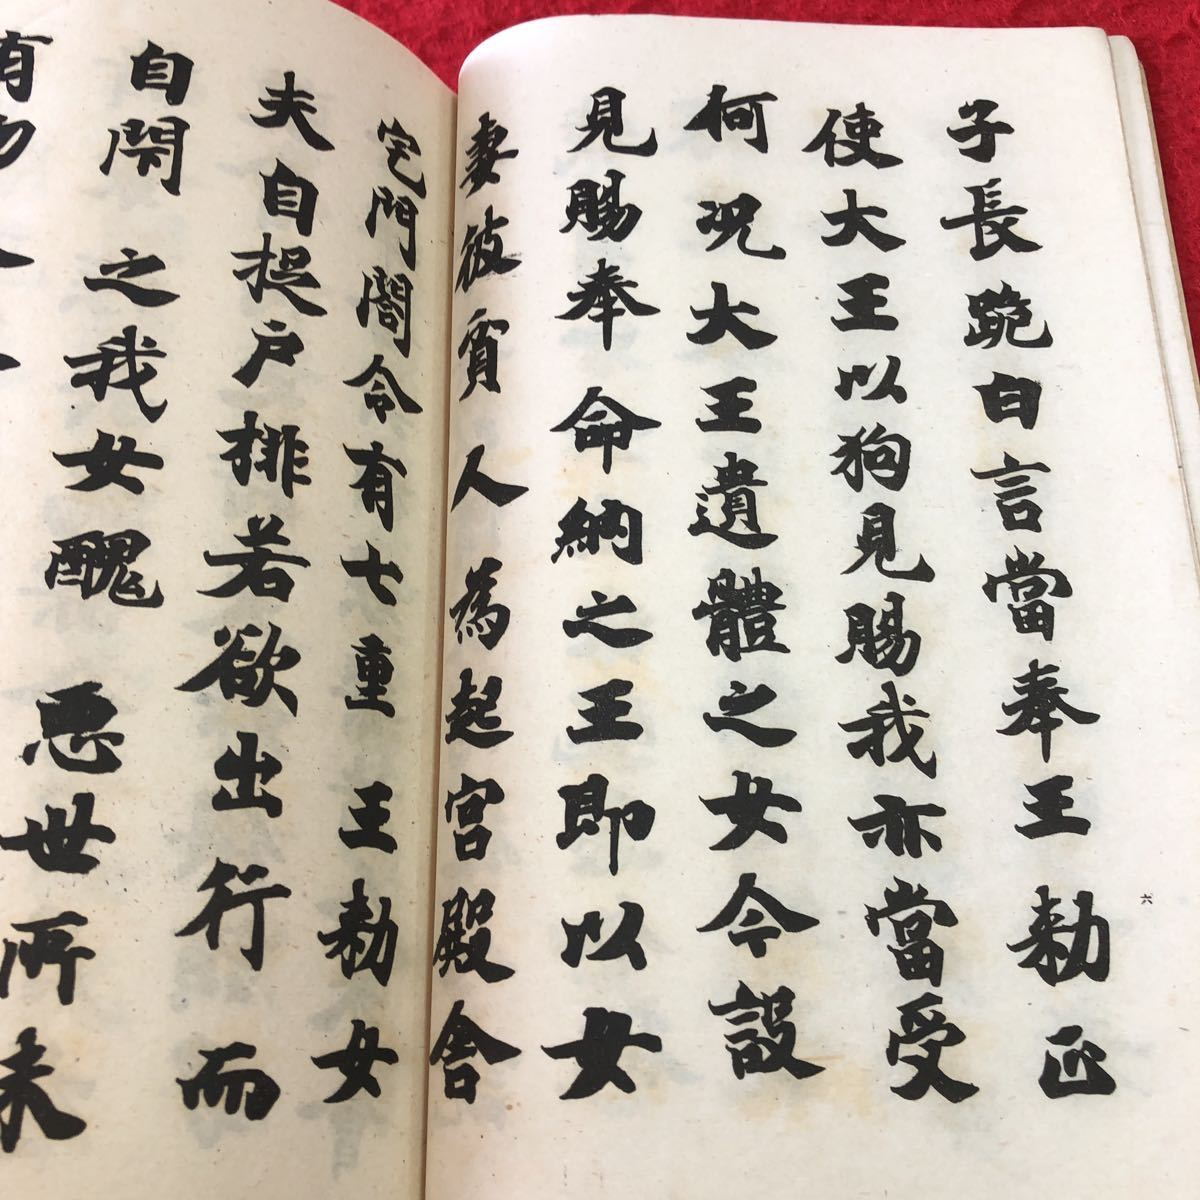 子長跪白言當奉王勅正
使大王以狗見賜我亦當受
何況大王遺體之女今設
見賜奉命納之王即以女
妻彼賓人為起宮殿舍
宅門閤令有七重王勅女
夫自捉戶排若欲出行而
自閇之我女醜惡世所未
有勿
六